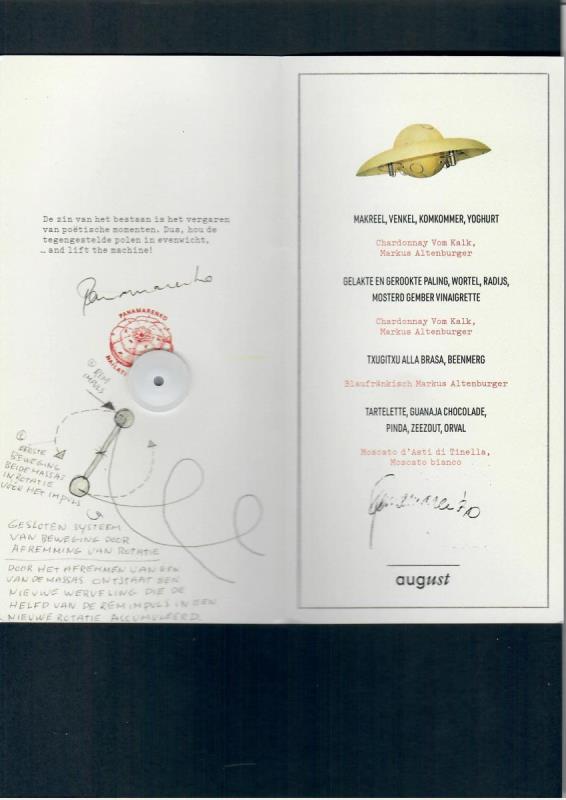 De zin van het bestaan is het vergaren
van poëtische momenten. Dus, hou de
tegengestelde polen in evenwicht,
… and lift the machine!
Panamarenko
PANAMARENKO
② REM
IMPULS
①
EERSTE
BEWEGING
BEIDE MASSAS
IN ROTATIE
VOOR HET IMPULS
GESLOTEN SYSTEEM
VAN BEWEGING DOOR
AFREMMING VAN ROTATIE
DOOR HET AFREMMEN VAN EEN
VAN DE MASSAS ONTSTAAT EEN
NIEUWE WERVELING DIE DE
HELFD VAN DE REMIMPULS IN EEN
NIEUWE ROTATIE ACCUMULEERD.
MAKREEL, VENKEL, KOMKOMMER, YOGHURT
Chardonnay Vom Kalk,
Markus Altenburger
GELAKTE EN GEROOKTE PALING, WORTEL, RADIJS,
MOSTERD GEMBER VINAIGRETTE
Chardonnay Vom Kalk,
Markus Altenburger
TXUGITXU ALLA BRASA, BEENMERG
Blaufränkisch Markus Altenburger
TARTELETTE, GUANAJA CHOCOLADE,
PINDA, ZEEZOUT, ORVAL
Moscato d'Asti di Tinella,
Moscato bianco
Panamarenko
august